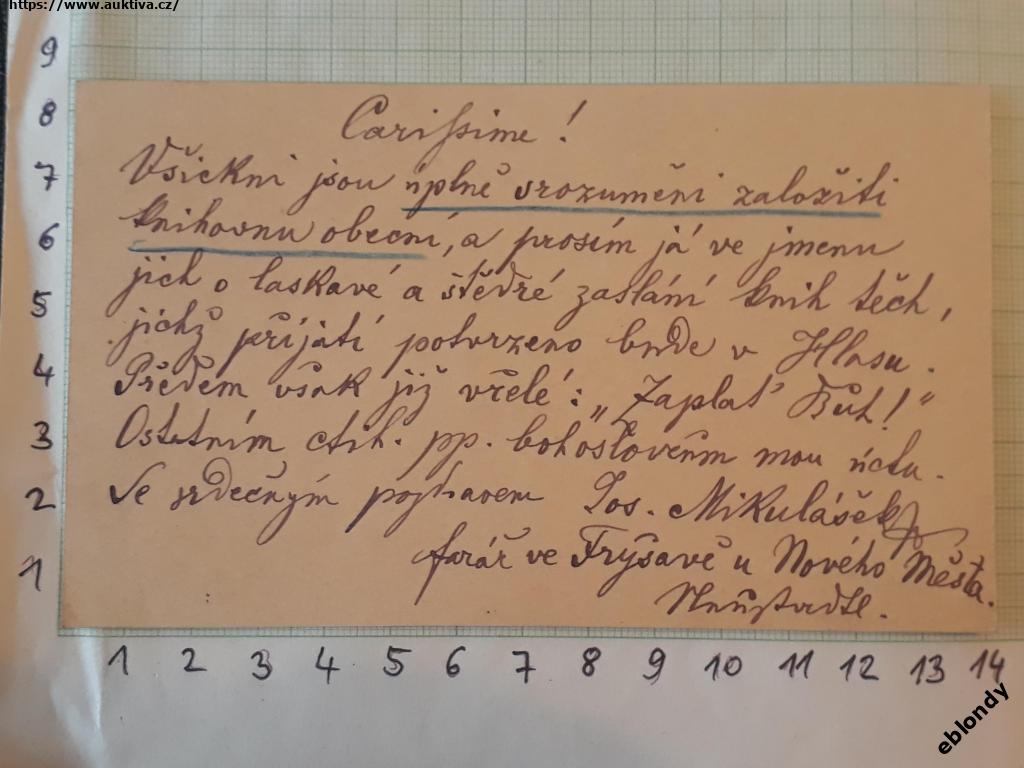 https://www.auktiva.cz/
Carissime!
Všickni jsou úplně srozuměni založiti
knihovnu obecní, a prosím já ve jmenu
jich o laskavé a štědré zaslání knih těch,
jichž přijatí potvrzeno bude v Hlasu.
Předem však již vřelé: „Zaplať Bůh!“
Ostatním ctih. pp. bohoslovcům mou úctu.
Se srdečným pozdravem Jos. Mikulášek
farář ve Fryšavě u Nového Města.
Neustadtl.
9
8
7
6
5
4
3
2
1
1 2 3 4 5 6 7 8 9 10 11 12 13 14
eblondy